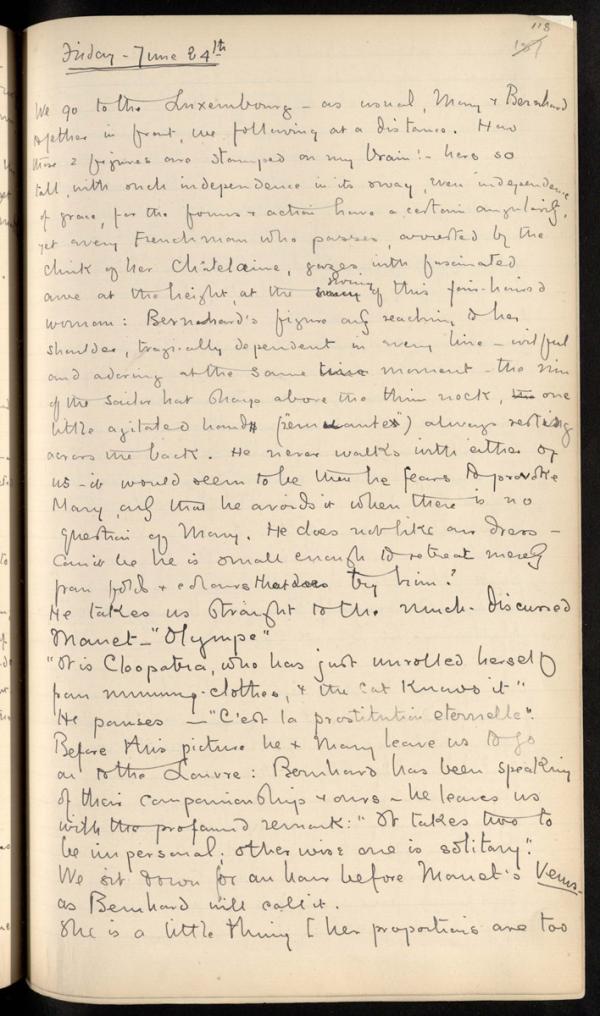 118
Friday - June 24th
We go to the Luxembourg - as usual, Mary & Bernhard
together in front, we following at a distance. How
those 2 figures are stamped on my brain! - hers so
tall, with such independence in its sway, even independence
of grace, for the forms & action have a certain angularity,
yet every Frenchman who passes, arrested by the
chink of her Châtelaine, gazes with fascinated
awe at the height, at the swing of this fair-haired
woman: Bernhard's figure only reaching to her
shoulder, tragically dependent in every line - wilful
and adoring at the same time moment - the rim
of the sailor hat sharp above the thin neck, one
little agitated hand ("remuante") always resting
across the back. He never walks with either of
us - it would seem to be that he fears to provoke
Mary, only that he avoids it when there is no
question of Mary. He does not like our dress -
can it be he is small enough to retreat merely
from folds & colours that does try him?
He takes us straight to the much-discussed
Manet - "Olympe"
"It is Cleopatra, who has just unrolled herself
from mummy-clothes, & the cat knows it"
He pauses - "C'est la prostitution eternelle".
Before this picture he & Mary leave us to go
on to the Louvre: Bernhard has been speaking
of their companionship & ours - he leaves us
with the profound remark: "It takes two to
be impersonal: otherwise one is solitary".
We sit down for an hour before Manet's Venus -
as Bernhard will call it.
She is a little thing [her proportions are too